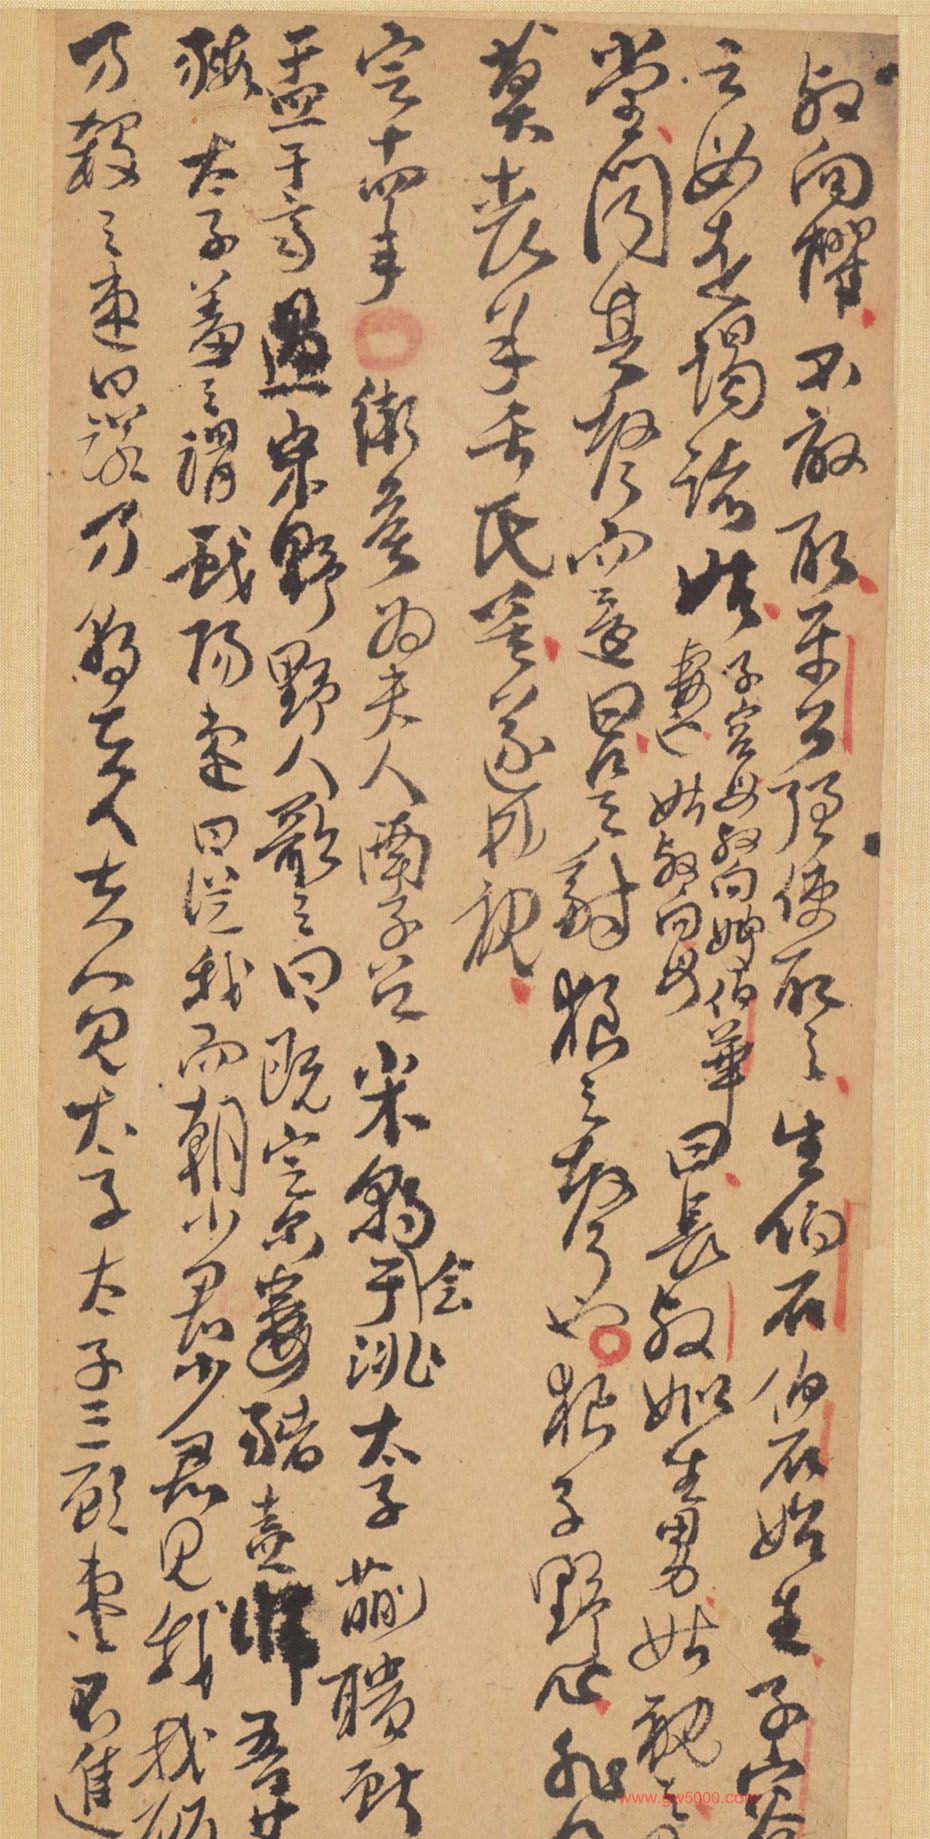 叔向懼不敢取平公強使取之生伯石伯石始生子容
之母走謁諸姑子容母叔向嫂伯華
妻也姑叔向母曰長叔姒生男姑視之
堂聞其聲而還曰是豺狼之聲也狼子野心非
莫喪羊舌氏矣遂弗視
定十四年衛矦為夫人南子召宋朝会于洮太子蒯聵獻
盂于齊過宋野野人歌之曰既定尔婁豬盍歸吾艾
豭太子羞之謂戲陽速曰從我而朝少君少君見我我顧
乃殺之速曰諾乃朝夫人夫人見太子太子三顧速不進
www.gw5000.com